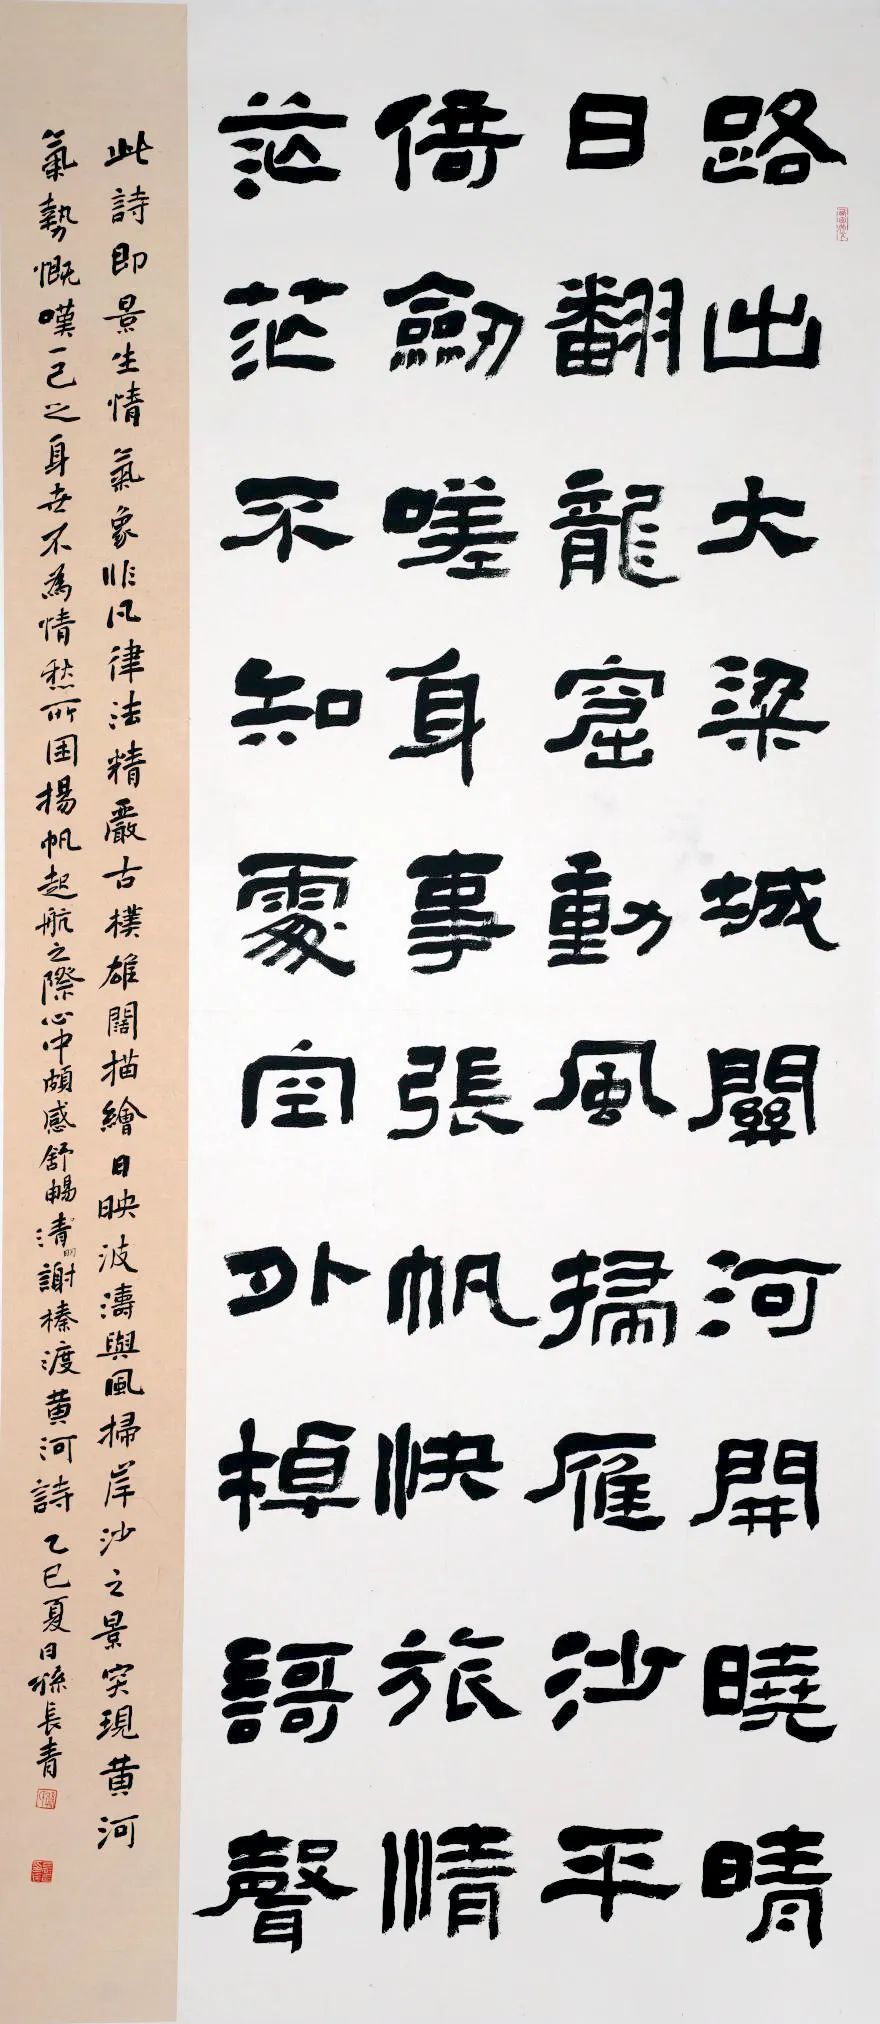 路出大梁城關河開曉晴
日翻龍窟動風掃雁沙平
倚劍嗟身事張帆快旅情
茫茫不知處空外棹謌聲
此詩即景生情氣象非凡律法精嚴古樸雄闊描繪日映波濤與風掃岸沙之景突現黄河
氣勢慨嘆一己之身世不為情愁所困揚帆起航之際心中頗感舒暢清明謝榛渡黄河詩乙巳夏日孫長青